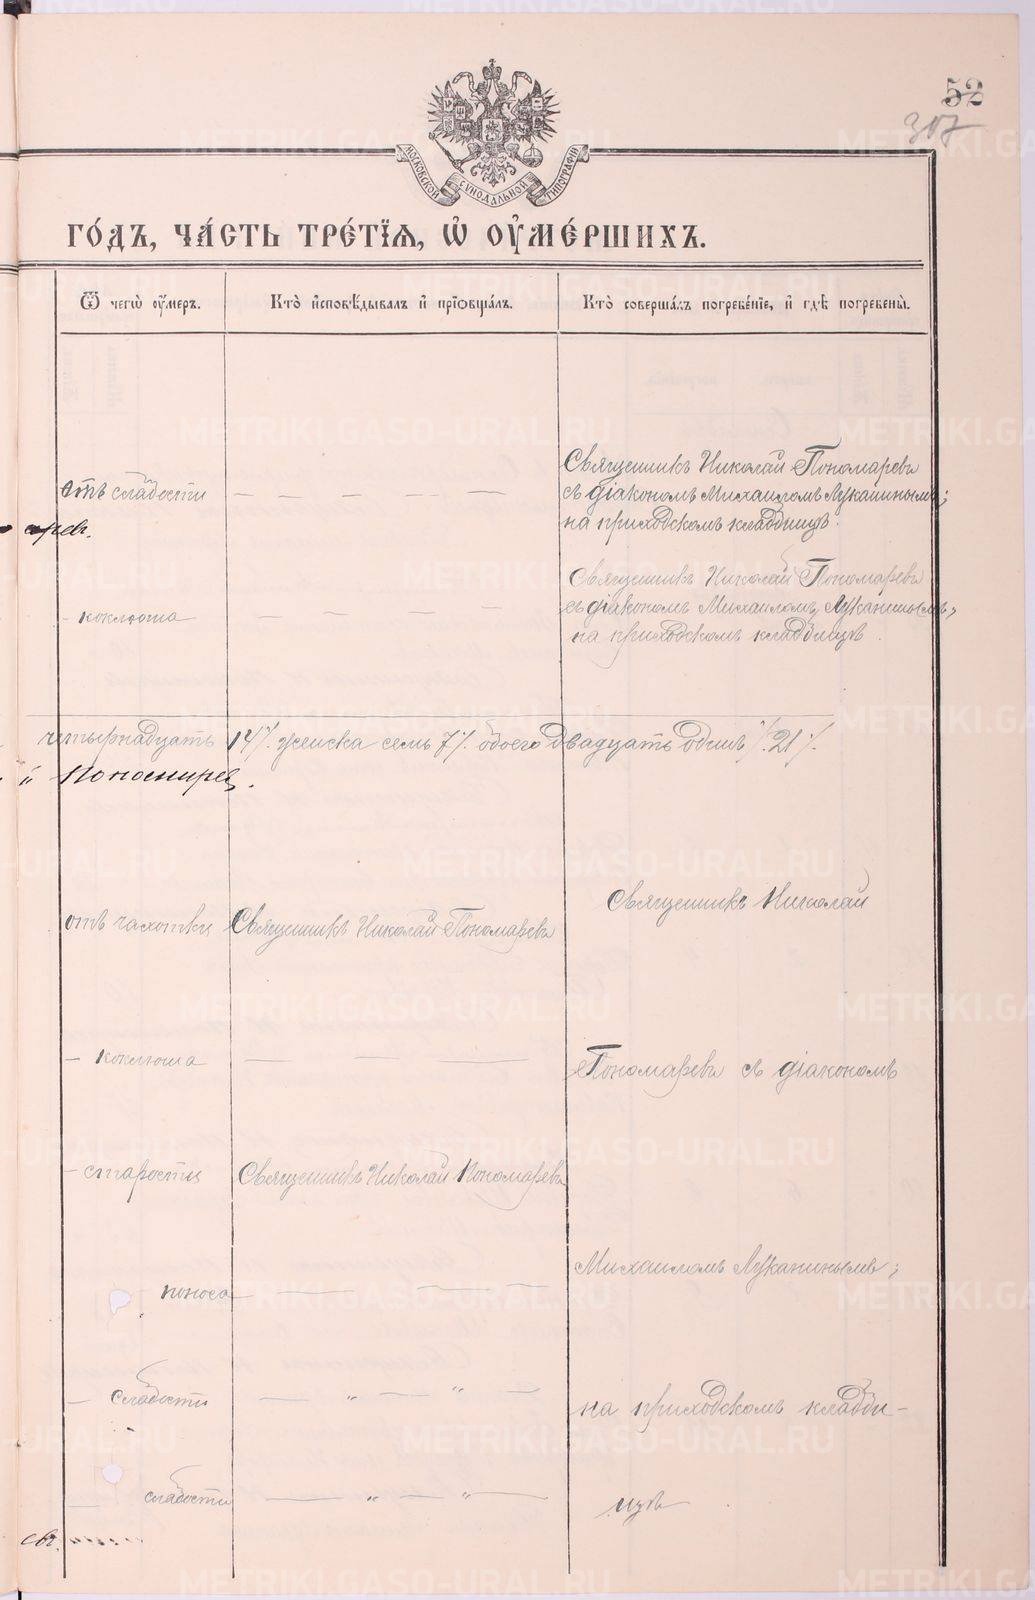 52
307
МОСКОВСКОЙ СУНОДАЛЬНОЙ ТИПОГРАФІИ
ГОДЪ, ЧАСТЬ ТРЕТІЯ, Ѽ ОУМЕРШИХЪ.
Ѿ чегѡ оумеръ.
Кто исповѣдывалъ и пріѡбщалъ.
Кто совершалъ погребеніе, и гдѣ погребены.
отъ слабости
— — — — —
Священникъ Николай Пономаревъ
съ діакономъ Михаиломъ Луканинымъ;
на приходскомъ кладбищѣ.
- коклюша
— — — —
Священникъ Николай Пономаревъ
съ діакономъ Михаиломъ Луканинымъ,
на приходскомъ кладбищѣ.
четырнадцать 14%. женска семь 7%. обоего двадцать одинъ %.21%.
отъ чахотки
Священникъ Николай Пономаревъ
Священникъ Николай
— коклюша
— — —
Пономаревъ съ діакономъ
- старости
Священникъ Николай Пономаревъ
Михаиломъ Луканинымъ;
поноса
— — —
— слабости
— " — " —
на приходскомъ кладби-
щѣ
слабости
— " — " —
св.
METRIKI.GASO-URAL.RU